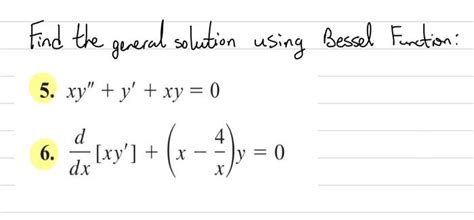 Find the general solution using Bessel Function:
5. xy″ + y′ + xy = 0
6. d/dx [xy′] + (x − 4/x) y = 0